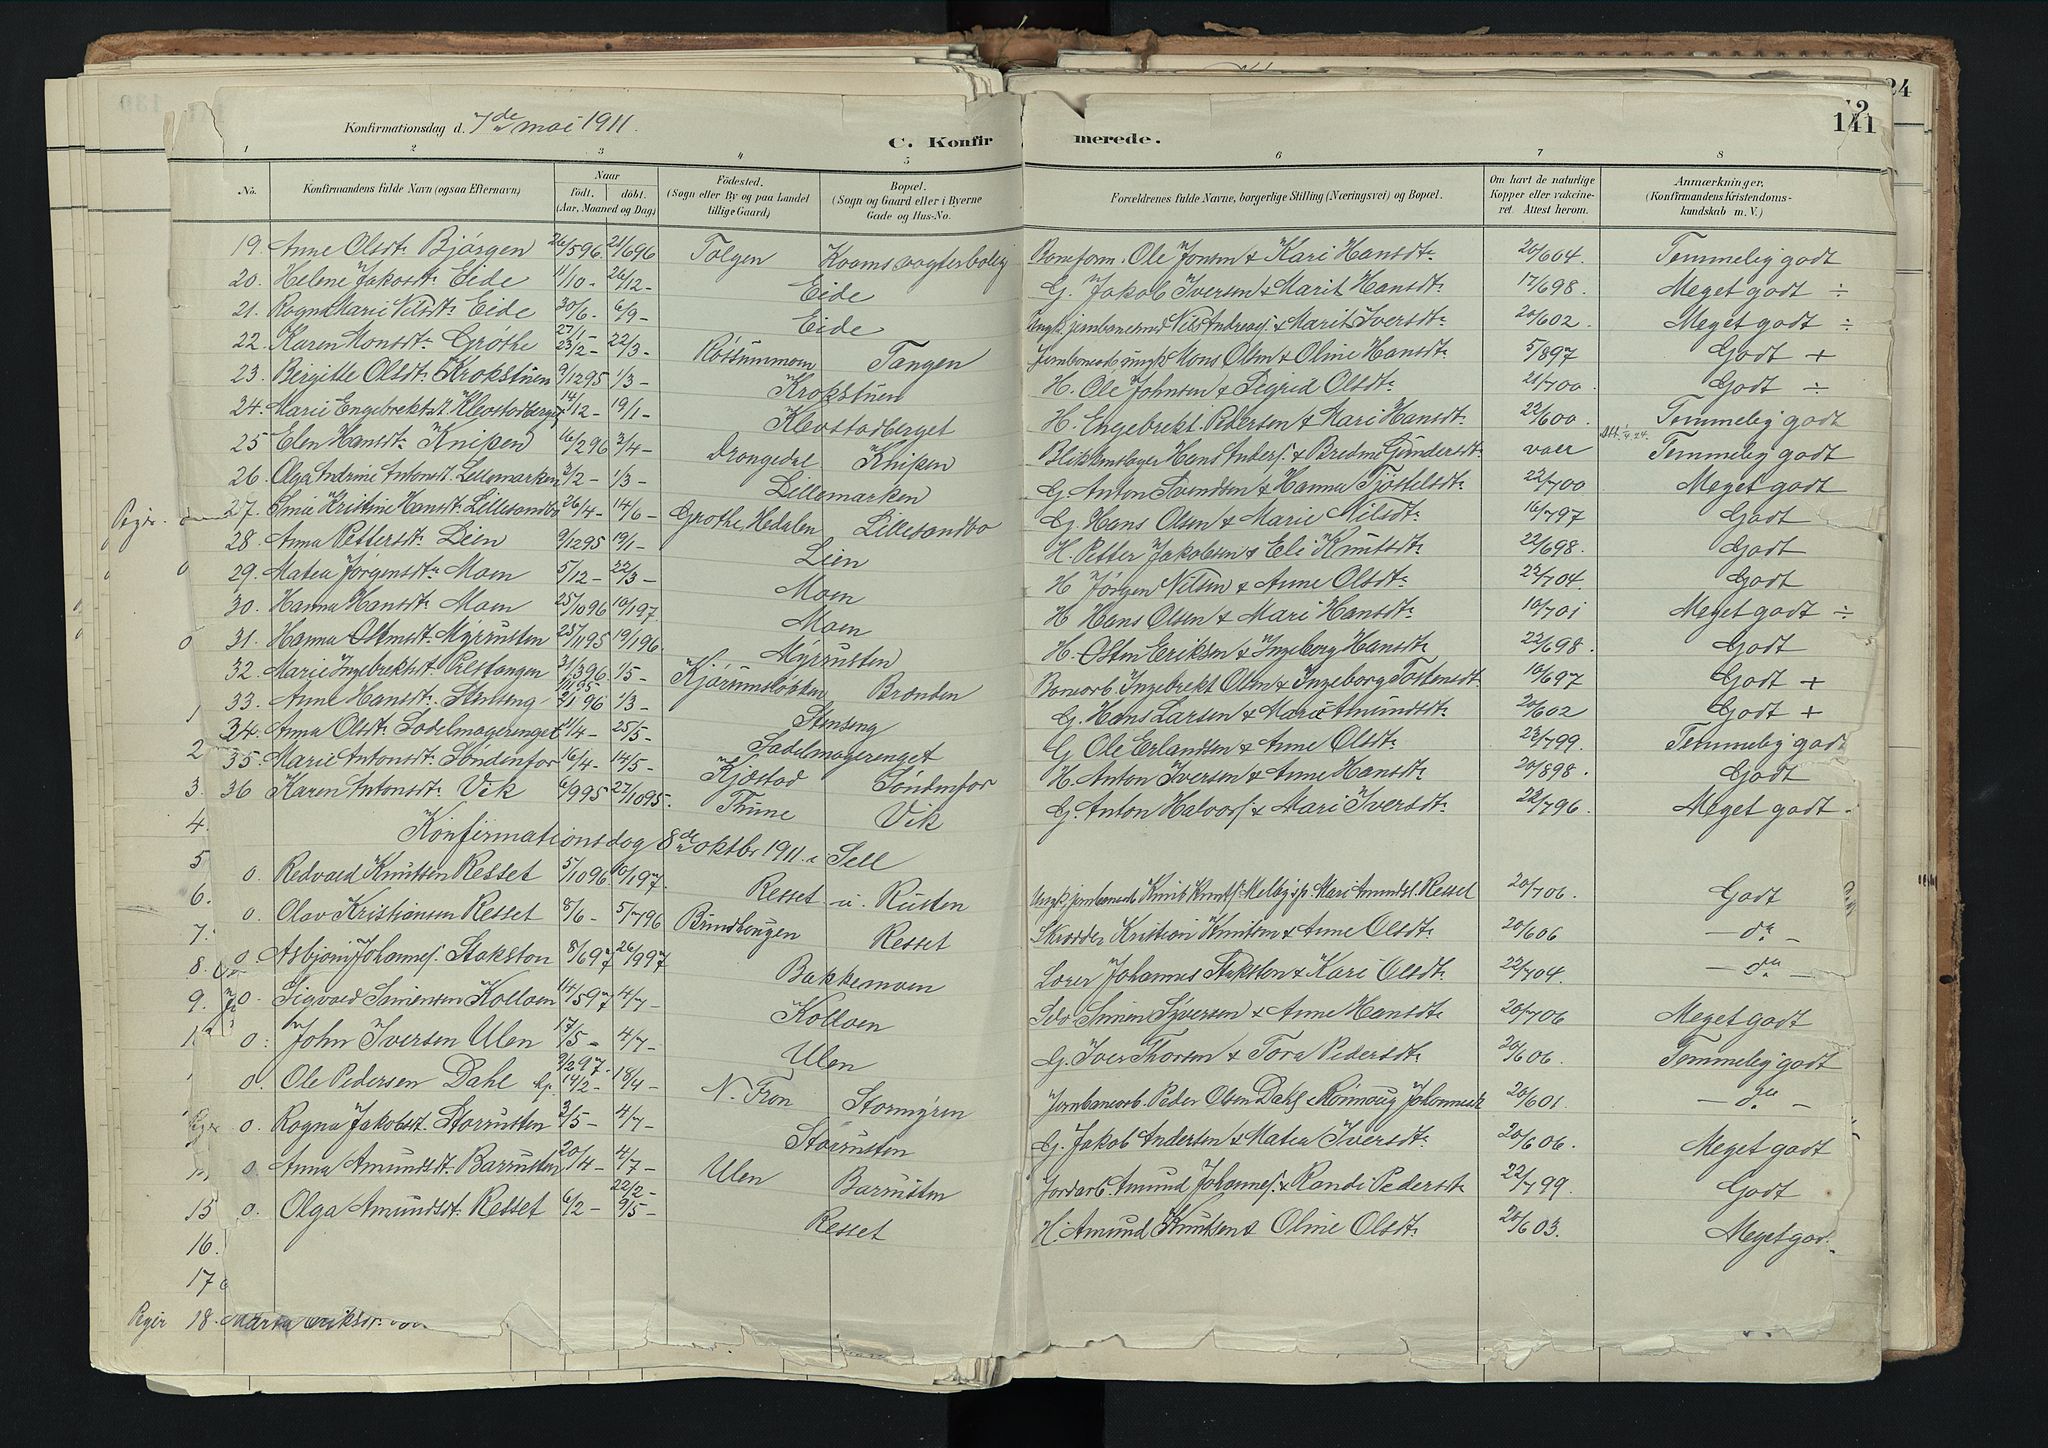 Konfirmationsdag d. 7de mai 1911.
C. Konfirmerede.
24
12
141
1 2 3 4 5 6 7 8
No.
Konfirmandens fulde Navn (ogsaa Efternavn)
Naar
födt. döbt.
(Aar, Maaned og Dag)
Födested.
(Sogn eller By og paa Landet tillige Gaard)
Bopæl.
(Sogn og Gaard eller i Byerne Gade og Hus-No.
Forældrenes fulde Navne, borgerlige Stilling (Næringsvei) og Bopæl.
Om havt de naturlige Kopper eller vakcineret. Attest herom.
Anmærkninger.
(Konfirmandens Kristendomskundskab m. V.)
19. Anne Olsdtr Bjørgen 26/596 21/696 Tolgen Koomsvogterbolig Ole Jonsen & Kari Hansdtr 20/604 Temmelig godt
20. Helene Jakobsdtr Eide 11/10 - 26/12 - Eide G. Jakob Iversen & Marit Hansdtr 17/698. Meget godt ÷
21. Ragna Marie Nilsdtr Eide 30/6 - 6/9 - Eide Nils Andreas. & Marit Iversdtr 20/602 Meget godt ÷
22. Karen Monsdtr Grøthe 23/2 - 22/3 - Tangen Mons Olsen & Oline Hansdtr 5/897 Godt +
23. Birgitte Olsdtr Krokstuen 9/1295 1/3 - Krokstuen H. Ole Johnsen & Sigrid Olsdtr 21/700. Godt ÷
24. Marie Engebrektsdt. Klevstadberget 14/12 - 19/1 - Klevstadberget H. Engebrekt Pedersen & Kari Hansdtr 22/600. Temmelig godt
25 Elen Hansdtr Knipen 16/296 3/4 - Drangedal Knipen Blikkenslager Hans Anders. & Gundersdtr Temmelig godt
26. Olga Andrine Antonsdt. Lillemarken 3/2 - 1/3 - Lillemarken G. Anton Svendsen & Hanna Tjøstelsdtr 22/700 Meget godt
27. Kristine Hansdt. Lillesandbo 26/4 - 14/6 - Grothe, Hedalen Lillesandbo G. Hans Olsen & Marie Nilsdtr 16/797 Godt
28. Anna Pettersdtr Lien 9/1295 19/1 - Lien H. Petter Jakobsen & Eli Knutsdtr 22/698. Godt
29. Matea Jørgensdtr Moen 5/12 - 22/3 - Moen H Jørgen Nilsen & Anne Olsdtr 22/704. Godt
30. Hanna Hansdtr Moen 25/1096 10/197. Moen H Hans Olsen & Mari Hansdtr 10/701 Meget godt ÷
31. Hanna Ostensdt. Myrrusten 23/1195 19/196. Myrrusten H. Osten Eriksen & Ingeborg Hansdt 22/698. Godt
32. Marie Ingebrektsdt. Prestangen 31/396 1/5 - Brænden Ingebrekt Olsen & Ingeborg Tostensdt. 10/697 Godt +
33. Anne Hansdtr Stenseng 2/196 1/3 - Stenseng G. Hans Larsen & Marie Amundsdtr 20/602 Godt +
34. Anna Olsdtr Sadelmagerenget 11/4 - 25/5 - Sadelmagerenget G Ole Erlandsen & Anne Olsdtr 22/799. Temmelig godt
35. Marie Antonsdt. Søndenfor 16/4 - 14/5 - Kjøstad Søndenfor H. Anton Iversen & Anne Hansdtr 20/898. Godt
36 Karen Antonsdtr Vik 6/995 27/1095. Thune Vik G. Anton Halvors. & Mari Iversdtr 22/796. Meget godt -
Konfirmationsdag 8de oktbr 1911. i Sell
o. Redvald Knutsen Resset 5/1096 10/197. Resset Rusten Knut Knuts. Melby Mari Amundsd. Resset 20/706. Godt
o. Olav Kristiansen Resset 8/6 - 5/796 Brundhaugen Resset Skrædder Kristian Knutsen & Anne Olsdtr 20/606 - do -
o. Asbjørn Johannes. Stokston 8/697 26/997 Bakkemoen Lærer Johannes Stokston & Kari Olsdtr 22/704. - do -
o. Sigvald Simensen Kolloen 14/597 4/7 - Kolloen Selv. Simen Syversen & Anne Hansdtr 20/706 Meget godt
o. John Iversen Ulen 17/5 - 4/7 - Ulen G. Iver Thorsen & Tora Pedersdtr 20/606. Temmelig godt
o. Ole Pedersen Dahl 9/297. 14/2 - 18/4 - N. Fron Stormyren Jernbanearb. Peder Olsen Dahl & Rønnaug Johannesdt 20/601. - do -
o. Ragna Jakobsdt. Storrusten 3/5 - 4/7 - Storrusten G. Jakob Andersen & Matea Iversdtr 20/606. Meget godt
o. Anna Amundsdt. Barrusten 20/4 - 4/7 - Ulen Barrusten Jordarb. Amund Johannes. & Randi Pedersdt 22/799. Godt
o. Olga Amundsdt. Resset 6/2 - 22/2 - 9/5 - Resset H. Amund Knutsen & Oline Olsdtr 20/603. Meget god
1
2
3.
4.
5
6.
7.
8.
9.
15
16.
17
18.